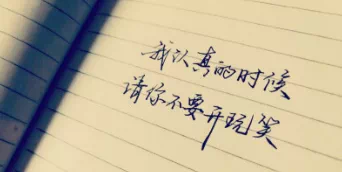 我认真的时候
请你不要开玩笑